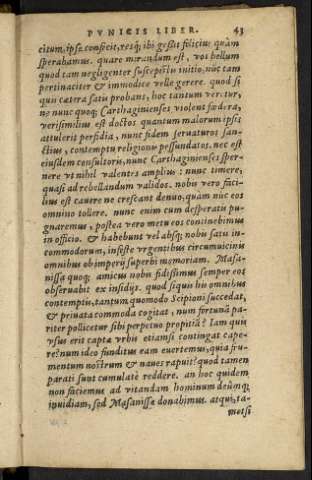 PVNICIS LIBER. 43
citum, ipse conficit, resq; ibi gessit felicius quàm
sperabamus. quare mirandum est, vos bellum
quod tam negligenter susceptū initio, nūc tam
pertinaciter & immodice velle gerere. quod si
qui cætera satis probant, hoc tantum verētur,
ne nunc quoq; Carthaginenses violent fœdera,
verisimilius est doctos quantum malorum ipsis
attulerit perfidia, nunc fidem seruaturos san-
ctius, contemptu religionis pessundatos. nec est
eiusdem consultoris, nunc Carthaginenses sper-
nere vt nihil valentes amplius: nunc timere,
quasi ad rebellandum validos. nobis vero faci-
lius est cauere ne crescant denuo, quàm nūc eos
omnino tollere. nunc enim cum desperatis pu-
gnaremus, postea vero metu eos continebimus
in officio. & habebunt vel absq; nobis satis in-
commodorum, infeste vrgentibus circumuicinis
omnibus ob imperij superbi memoriam. Masa-
nissa quoq; amicus nobis fidissimus semper eos
obseruabit ex insidijs. quod si quis his omnibus
contemptis, tantum quomodo Scipioni succedat,
& priuata commoda cogitat, num fortunā pa-
riter pollicetur sibi perpetuo propitiā? Iam quis
vsus erit captæ vrbis etiamsi contingat cape-
re? num ideo funditus eam euertemus, quia fru-
mentum nostrum & naues rapuit? quod tamen
parati sunt cumulatè reddere. an hoc quidem
non faciemus ad vitandam hominum deûmq;
inuidiam, sed Masanissæ donabimus. atqui, ta-
metsi